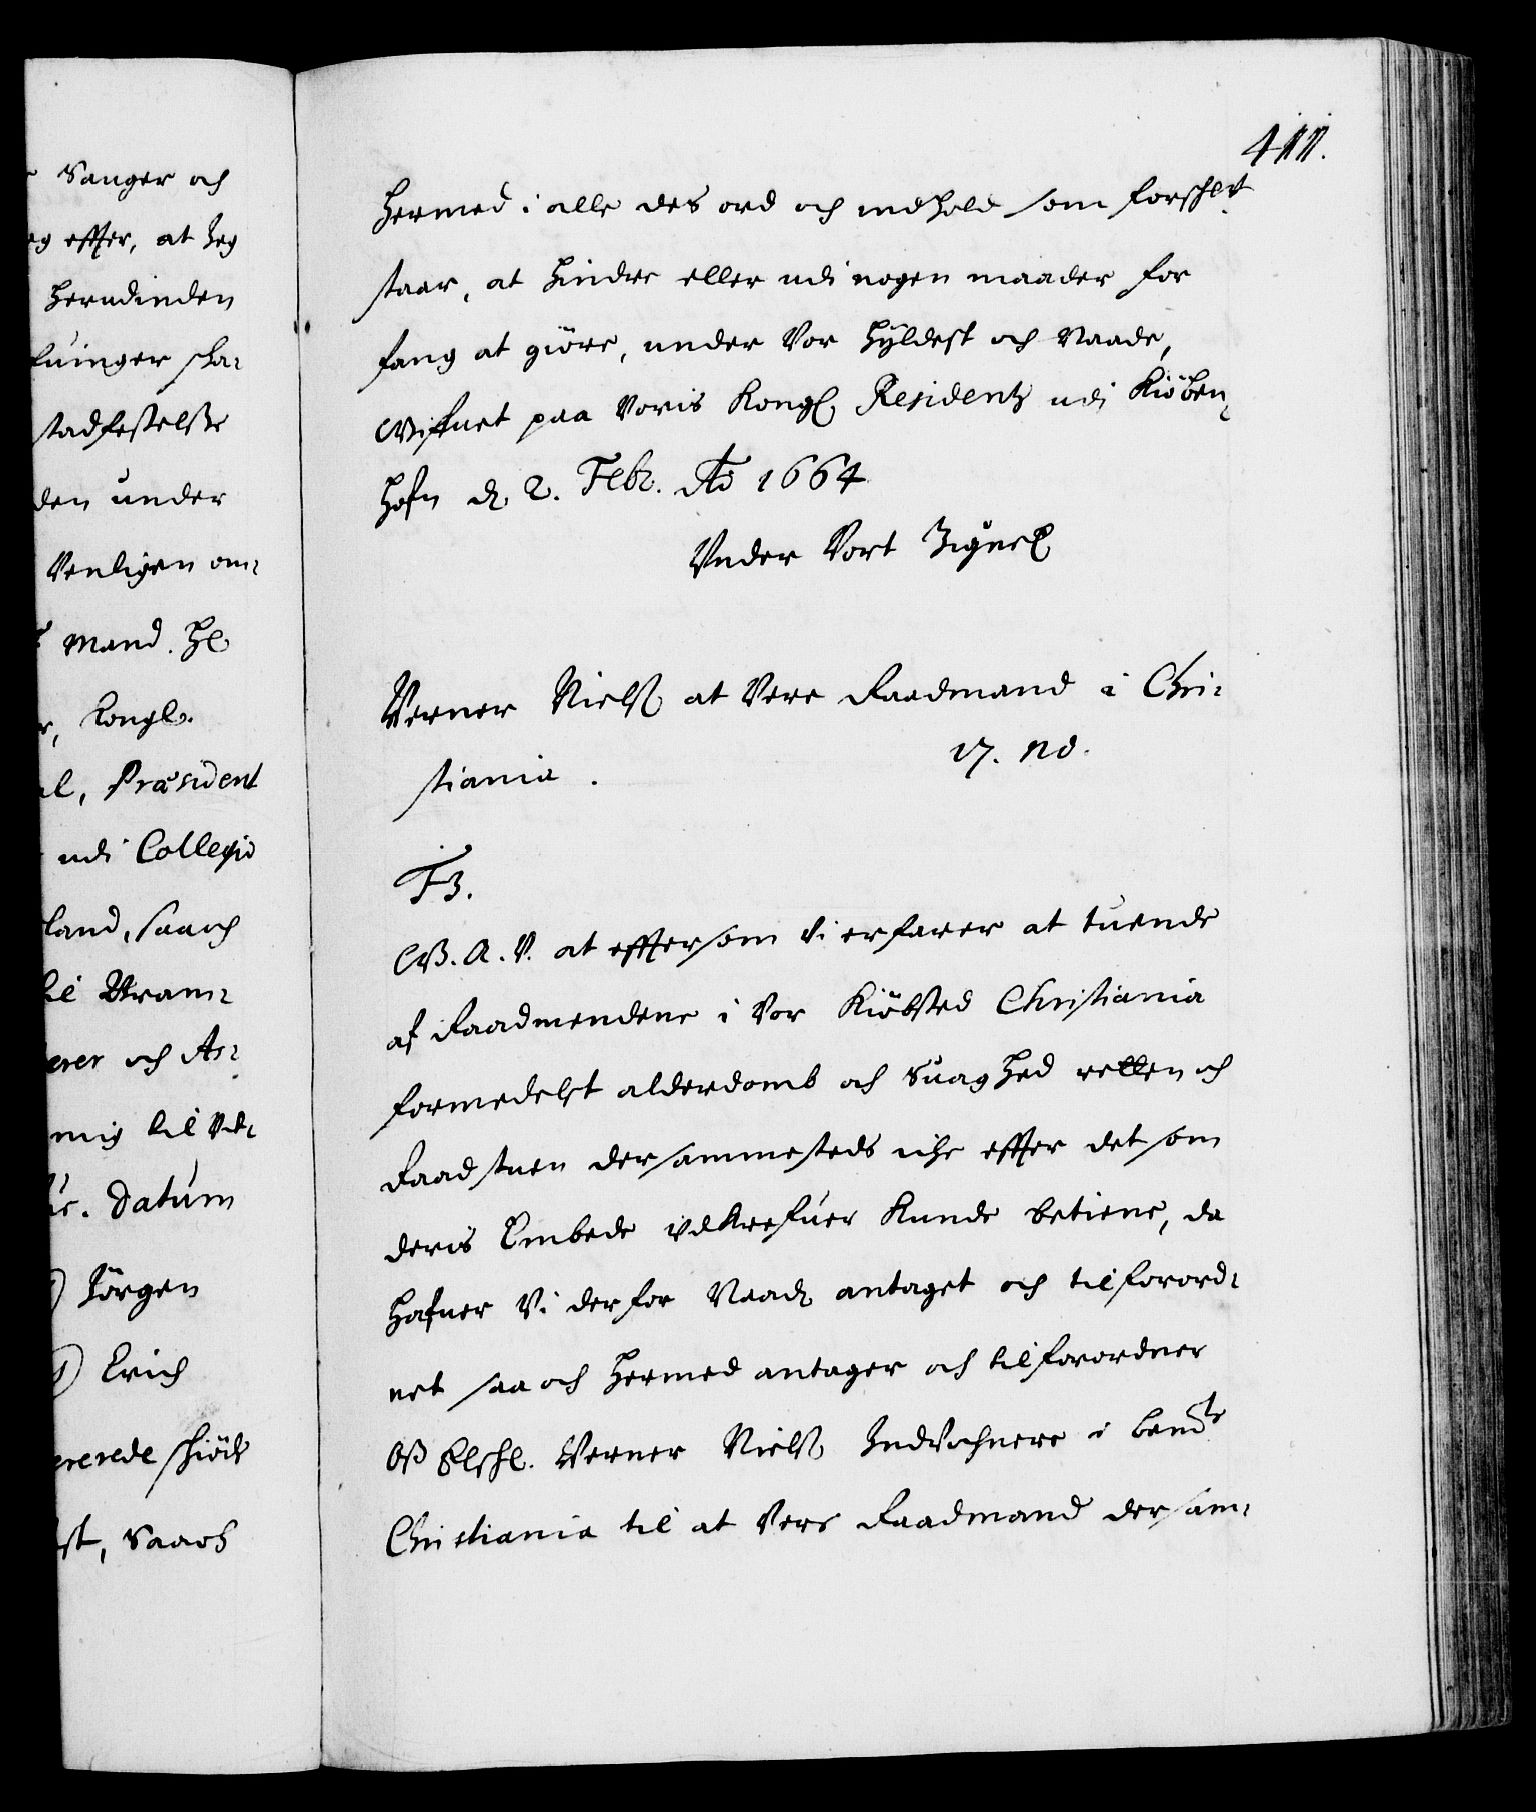 411.
Sanger och
eg effter, at Jeg
herudinden
fuinger ska-
stadfestelsse
den under
Venligen om-
Mand. Hl
r, Kongl.
al, Præsident
udi Collegio
land, saa och
til Bram-
erer och As-
mig til Vd-
us. Datum
Jörgen
Erich
ererede skiöde
st, Saa och
hermed i alle des ord och indhold som forschit
staar, at hindre eller udi nogen maader for
fang at giöre, under Vor hyldest och Naade,
Schifuet paa Voris Kongl Residentz udi Kiöben-
hafn d 2. Febr. Ao 1664
Vnder Vort Zignet
Verner Nielss at Vere Raadmand i Chri-
stiania. 17. no.
F3.
G.A.V. at effter som Vi erfarer at tuende
af Raadmendene i Vor Kiöbsted Christiania
formedelst alderdomb och Suaghed retten och
Raadstuen dersammesteds iche effter det som
deris Embede udkrefuer kunde betiene, da
hafuer Vi derfor Naad antaget och tilforord-
net saa och hermed antager och tilforordner
Oss Elschl. Verner Nielss Indvohnere i bemte
Christiania til at Vere Raadmand dersam-